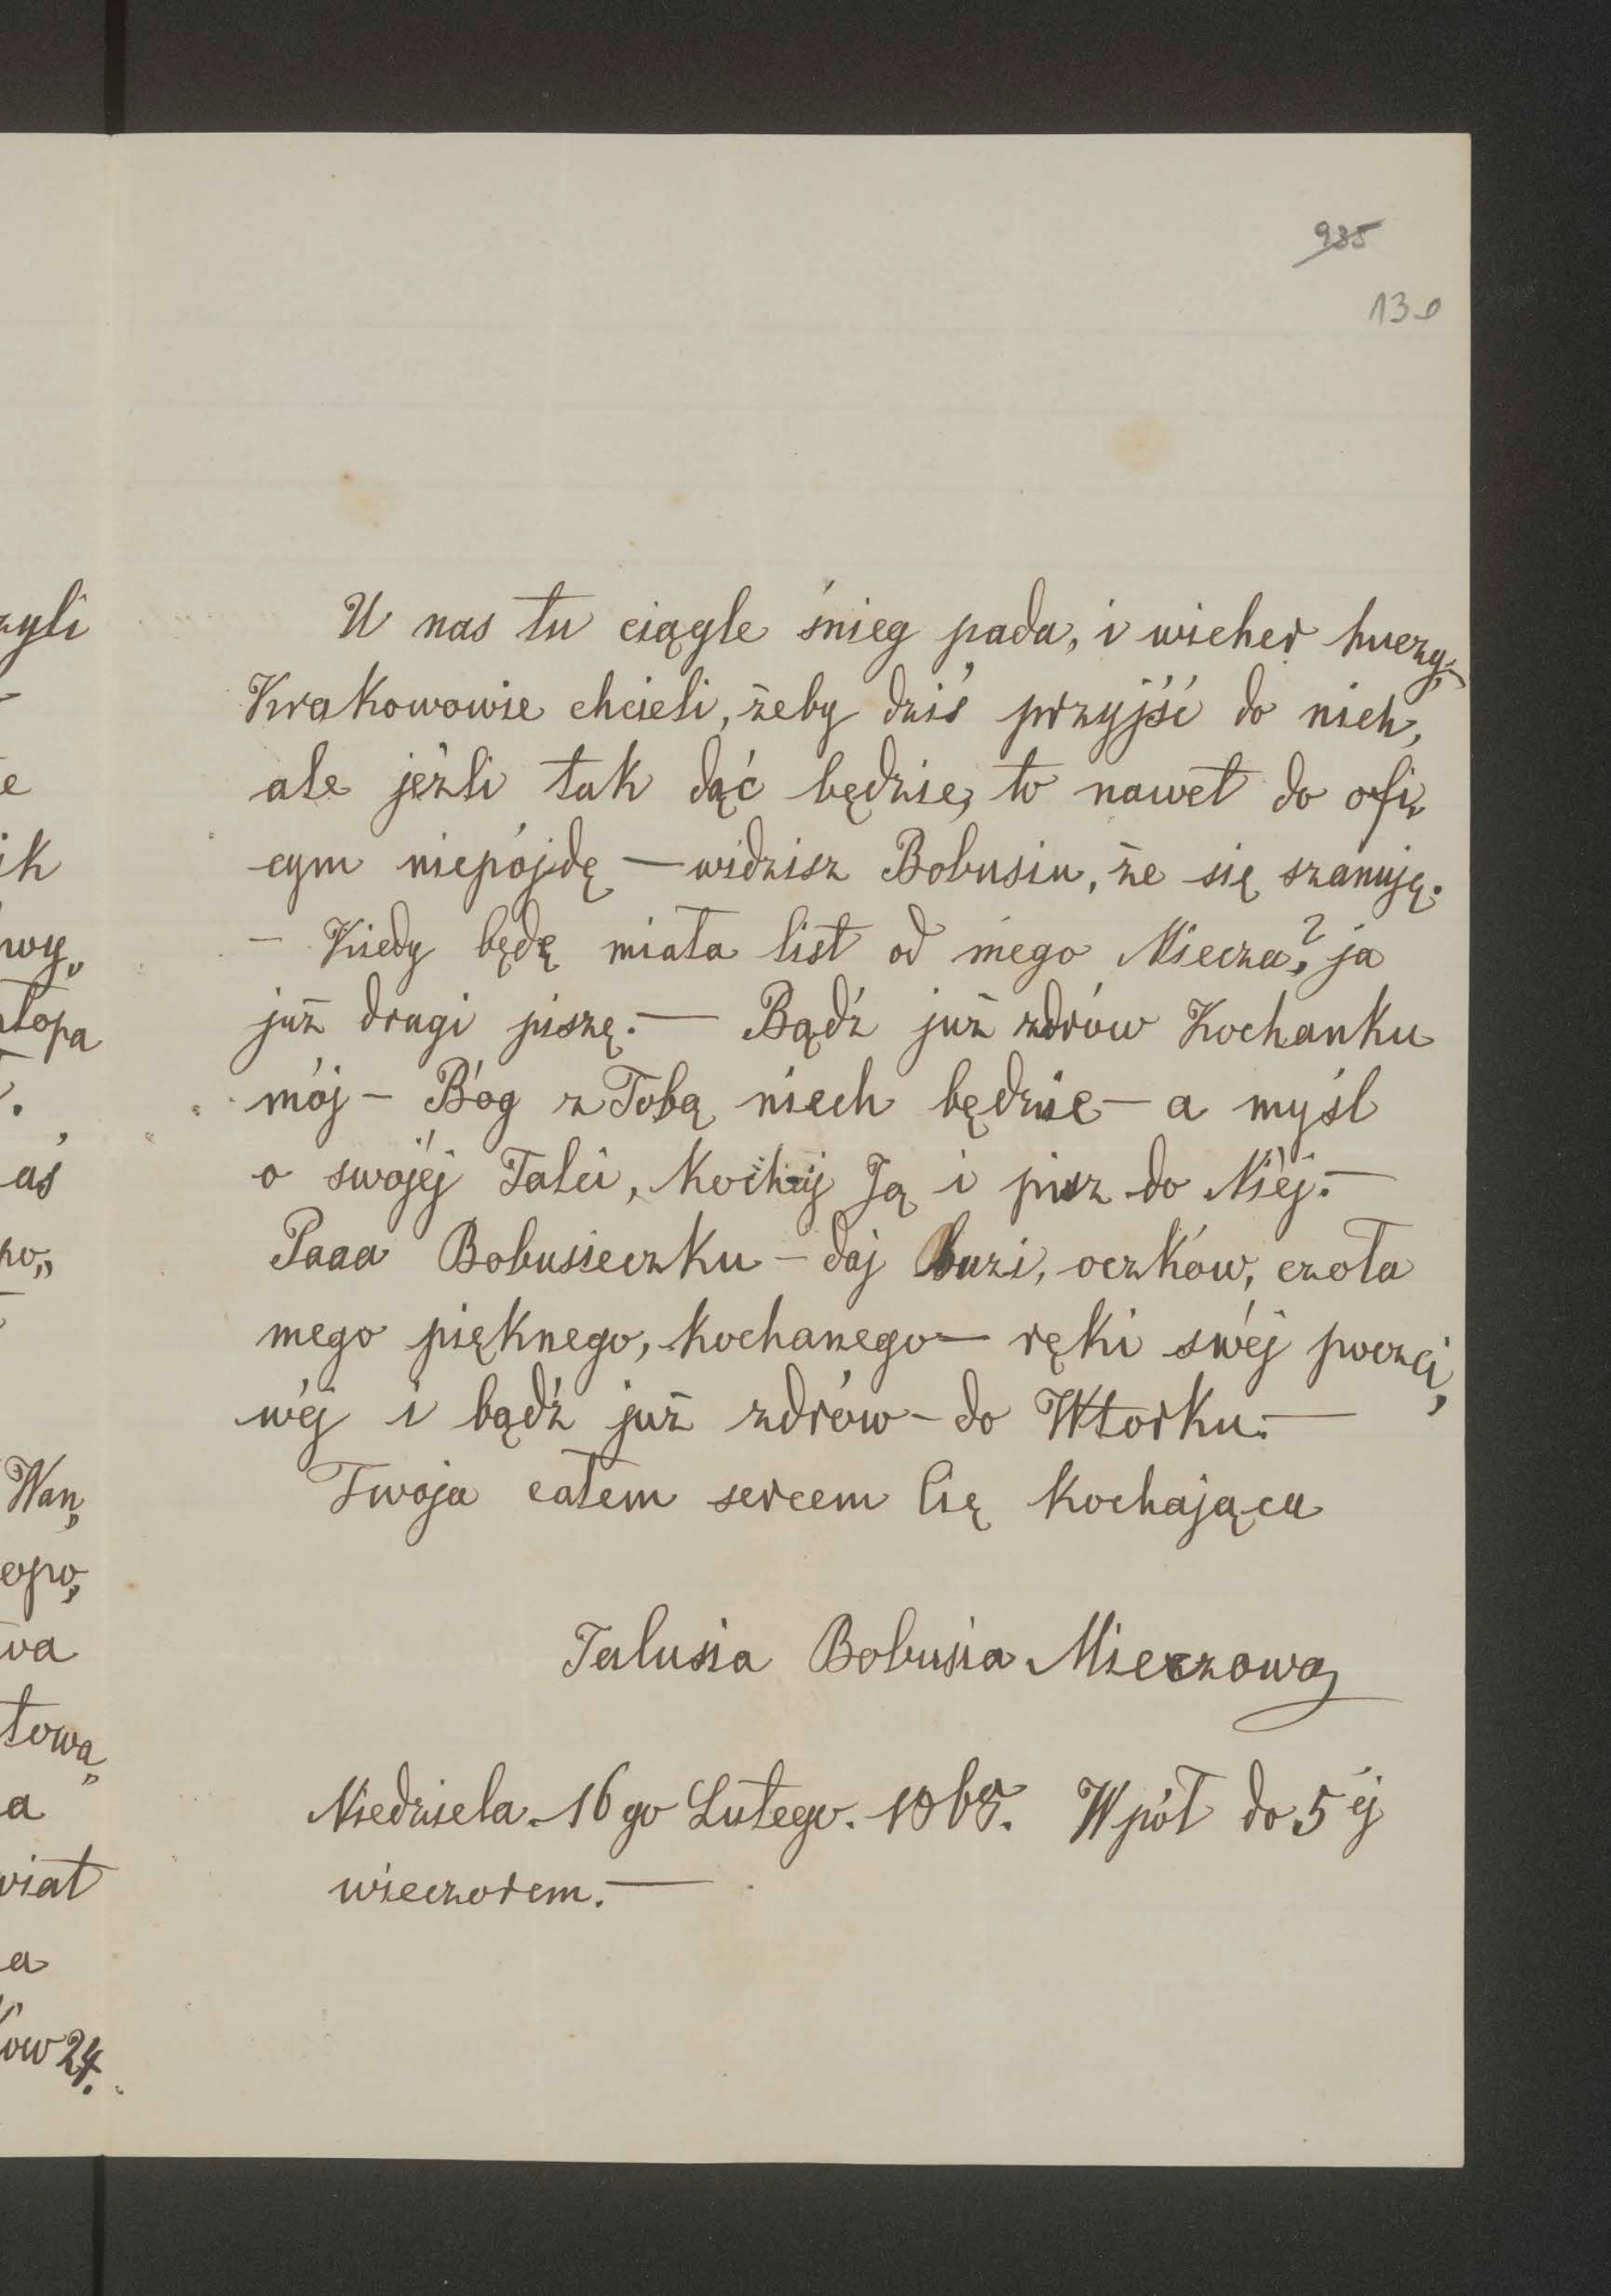 935
130
U nas tu ciągle śnieg pada, i wicher huczy,
Krakowowie chcieli, żeby dziś przyjść do nich,
ale jeźli tak dąć będzie, to nawet do ofi„
cym niepójdę — widzisz Bobusiu, że się szanuję.
– Kiedy będę miała list od mego Miecza?, ja
już drugi piszę. — Bądź już zdrów Kochanku
mój – Bóg z Tobą niech będzie – a myśl
o swojéj Talci, Kochaj Ją i pisz do Niéj. —
Paaa Bobusieczku – daj buzi, oczków, czoła
mego pięknego, kochanego – ręki swéj poczci„
wéj i bądź już zdrów – do Wtorku. —
Twoja całem sercem Cię Kochająca
Talusia Bobusia Mieczowa
Niedziela. 16go Lutego. 1868. W pół do 5éj
wieczorem. —
zyli
e
ik
wy„
łopa
aś
po„
Wan„
opo„
wa
tową„
a
wiat
a
ów 24.